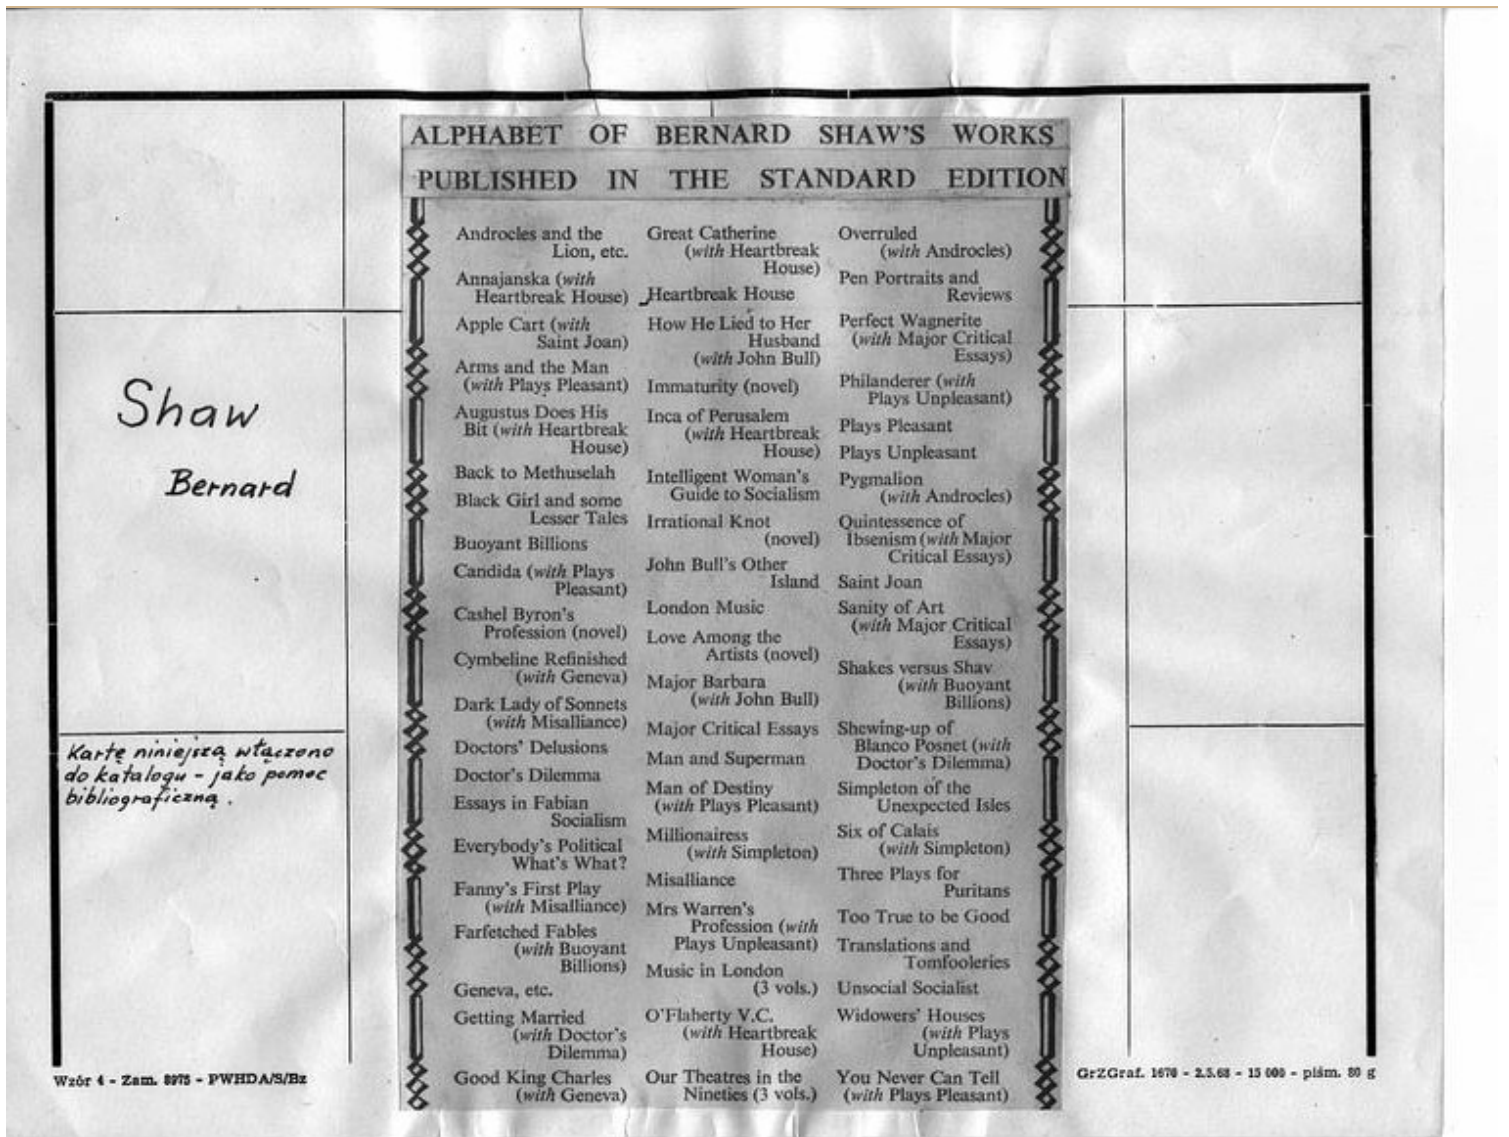 ALPHABET OF BERNARD SHAW'S WORKS
PUBLISHED IN THE STANDARD EDITION
Androcles and the
Lion, etc.
Annajanska (with
Heartbreak House)
Apple Cart (with
Saint Joan)
Arms and the Man
(with Plays Pleasant)
Augustus Does His
Bit (with Heartbreak
House)
Back to Methuselah
Black Girl and some
Lesser Tales
Buoyant Billions
Candida (with Plays
Pleasant)
Cashel Byron's
Profession (novel)
Cymbeline Refinished
(with Geneva)
Dark Lady of Sonnets
(with Misalliance)
Doctors' Delusions
Doctor's Dilemma
Essays in Fabian
Socialism
Everybody's Political
What's What?
Fanny's First Play
(with Misalliance)
Farfetched Fables
(with Buoyant
Billions)
Geneva, etc.
Getting Married
(with Doctor's
Dilemma)
Good King Charles
(with Geneva)
Great Catherine
(with Heartbreak
House)
Heartbreak House
How He Lied to Her
Husband
(with John Bull)
Immaturity (novel)
Inca of Perusalem
(with Heartbreak
House)
Intelligent Woman's
Guide to Socialism
Irrational Knot
(novel)
John Bull's Other
Island
London Music
Love Among the
Artists (novel)
Major Barbara
(with John Bull)
Major Critical Essays
Man and Superman
Man of Destiny
(with Plays Pleasant)
Millionairess
(with Simpleton)
Misalliance
Mrs Warren's
Profession (with
Plays Unpleasant)
Music in London
(3 vols.)
O'Flaherty V.C.
(with Heartbreak
House)
Our Theatres in the
Nineties (3 vols.)
Overruled
(with Androcles)
Pen Portraits and
Reviews
Perfect Wagnerite
(with Major Critical
Essays)
Philanderer (with
Plays Unpleasant)
Plays Pleasant
Plays Unpleasant
Pygmalion
(with Androcles)
Quintessence of
Ibsenism (with Major
Critical Essays)
Saint Joan
Sanity of Art
(with Major Critical
Essays)
Shakes versus Shav
(with Buoyant
Billions)
Shewing-up of
Blanco Posnet (with
Doctor's Dilemma)
Simpleton of the
Unexpected Isles
Six of Calais
(with Simpleton)
Three Plays for
Puritans
Too True to be Good
Translations and
Tomfooleries
Unsocial Socialist
Widowers' Houses
(with Plays
Unpleasant)
You Never Can Tell
(with Plays Pleasant)
Shaw
Bernard
Kartę niniejszą włączono
do katalogu - jako pomoc
bibliograficzną.
Wzór 4 - Zam. 8975 - PWHDA/S/Bz
GrZGraf. 1670 - 2.5.68 - 15 000 - piśm. 80 g